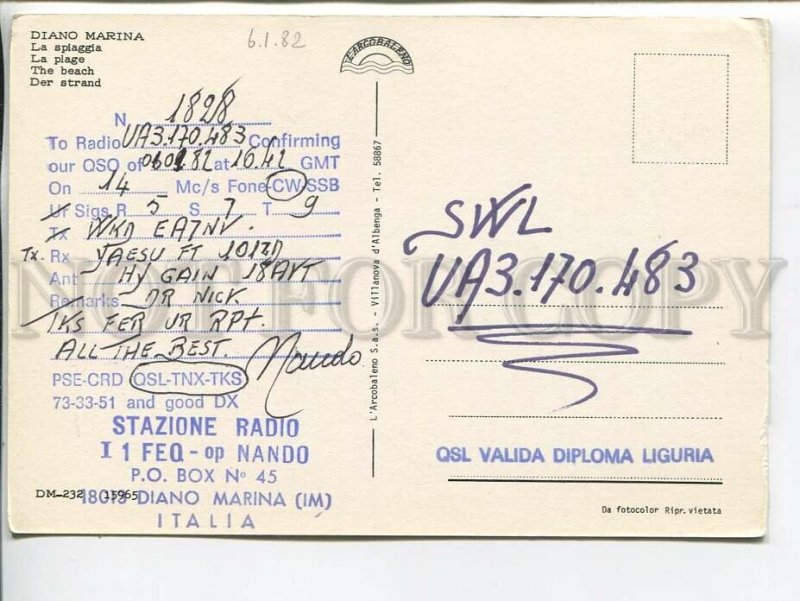 DIANO MARINA
La spiaggia
La plage
The beach
Der strand
6.1.82
L'ARCOBALENO
N 1828
To Radio UA3.170.483 Confirming
our QSO of 060182 at 16.42 GMT
On 14 Mc/s Fone-CW-SSB
Ur Sigs R 5 S 7 T 9
Tx WKD EA7NV.
Tx. Rx YAESU FT 101ZD
Ant HY GAIN 18AVT
Remarks DR NICK
TKS FER UR RPT.
ALL THE BEST. Nando
PSE-CRD QSL-TNX-TKS
73-33-51 and good DX
STAZIONE RADIO
I 1 FEQ - op NANDO
P.O. BOX No 45
18013 DIANO MARINA (IM)
ITALIA
DM-232 15965
L'Arcobaleno S.a.s. - Villanova d'Albenga - Tel. 58867
SWL
UA3.170.483
QSL VALIDA DIPLOMA LIGURIA
Da fotocolor Ripr. vietata
NOT FOR COPY